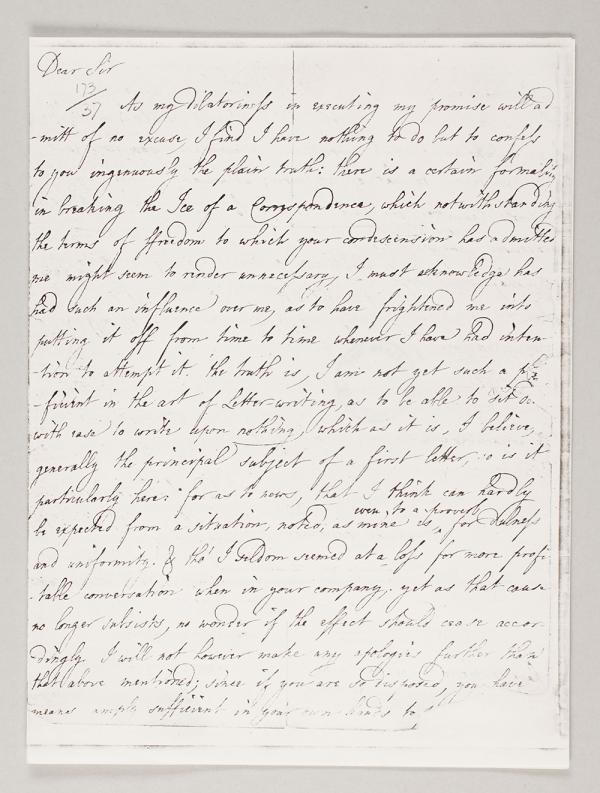 Dear Sir
173/37
As my dilatoriness in executing my promise will ad
-mitt of no excuse, I find I have nothing to do but to confess
to you ingenuously the plain truth: there is a certain formality
in breaking the Ice of a Correspondence, which notwithstanding
the terms of ffreedom to which your condescension has admitted
me might seem to render unnecessary, I must acknowledge has
had such an influence over me, as to have frightened me into
putting it off from time to time whenever I have had inten-
-tion to attempt it. the truth is, I am not yet such a
-ficient in the art of Letter writing, as to be able to sit
with ease to write upon nothing, which as it is, I believe,
generally the principal subject of a first letter, so is it
particularly here: for as to news, that I think can hardly
even to a proverb
be expected from a situation, noted, as mine is, for Dulness
and uniformity. & tho' I seldom seemed at a loss for more profi-
-table conversation when in your company; yet as that cause
no longer subsists, no wonder if the effect should cease accor-
-dingly. I will not however make any apologies further than
that above mentioned; since if you are so disposed, you have
means amply sufficient in your own hands to